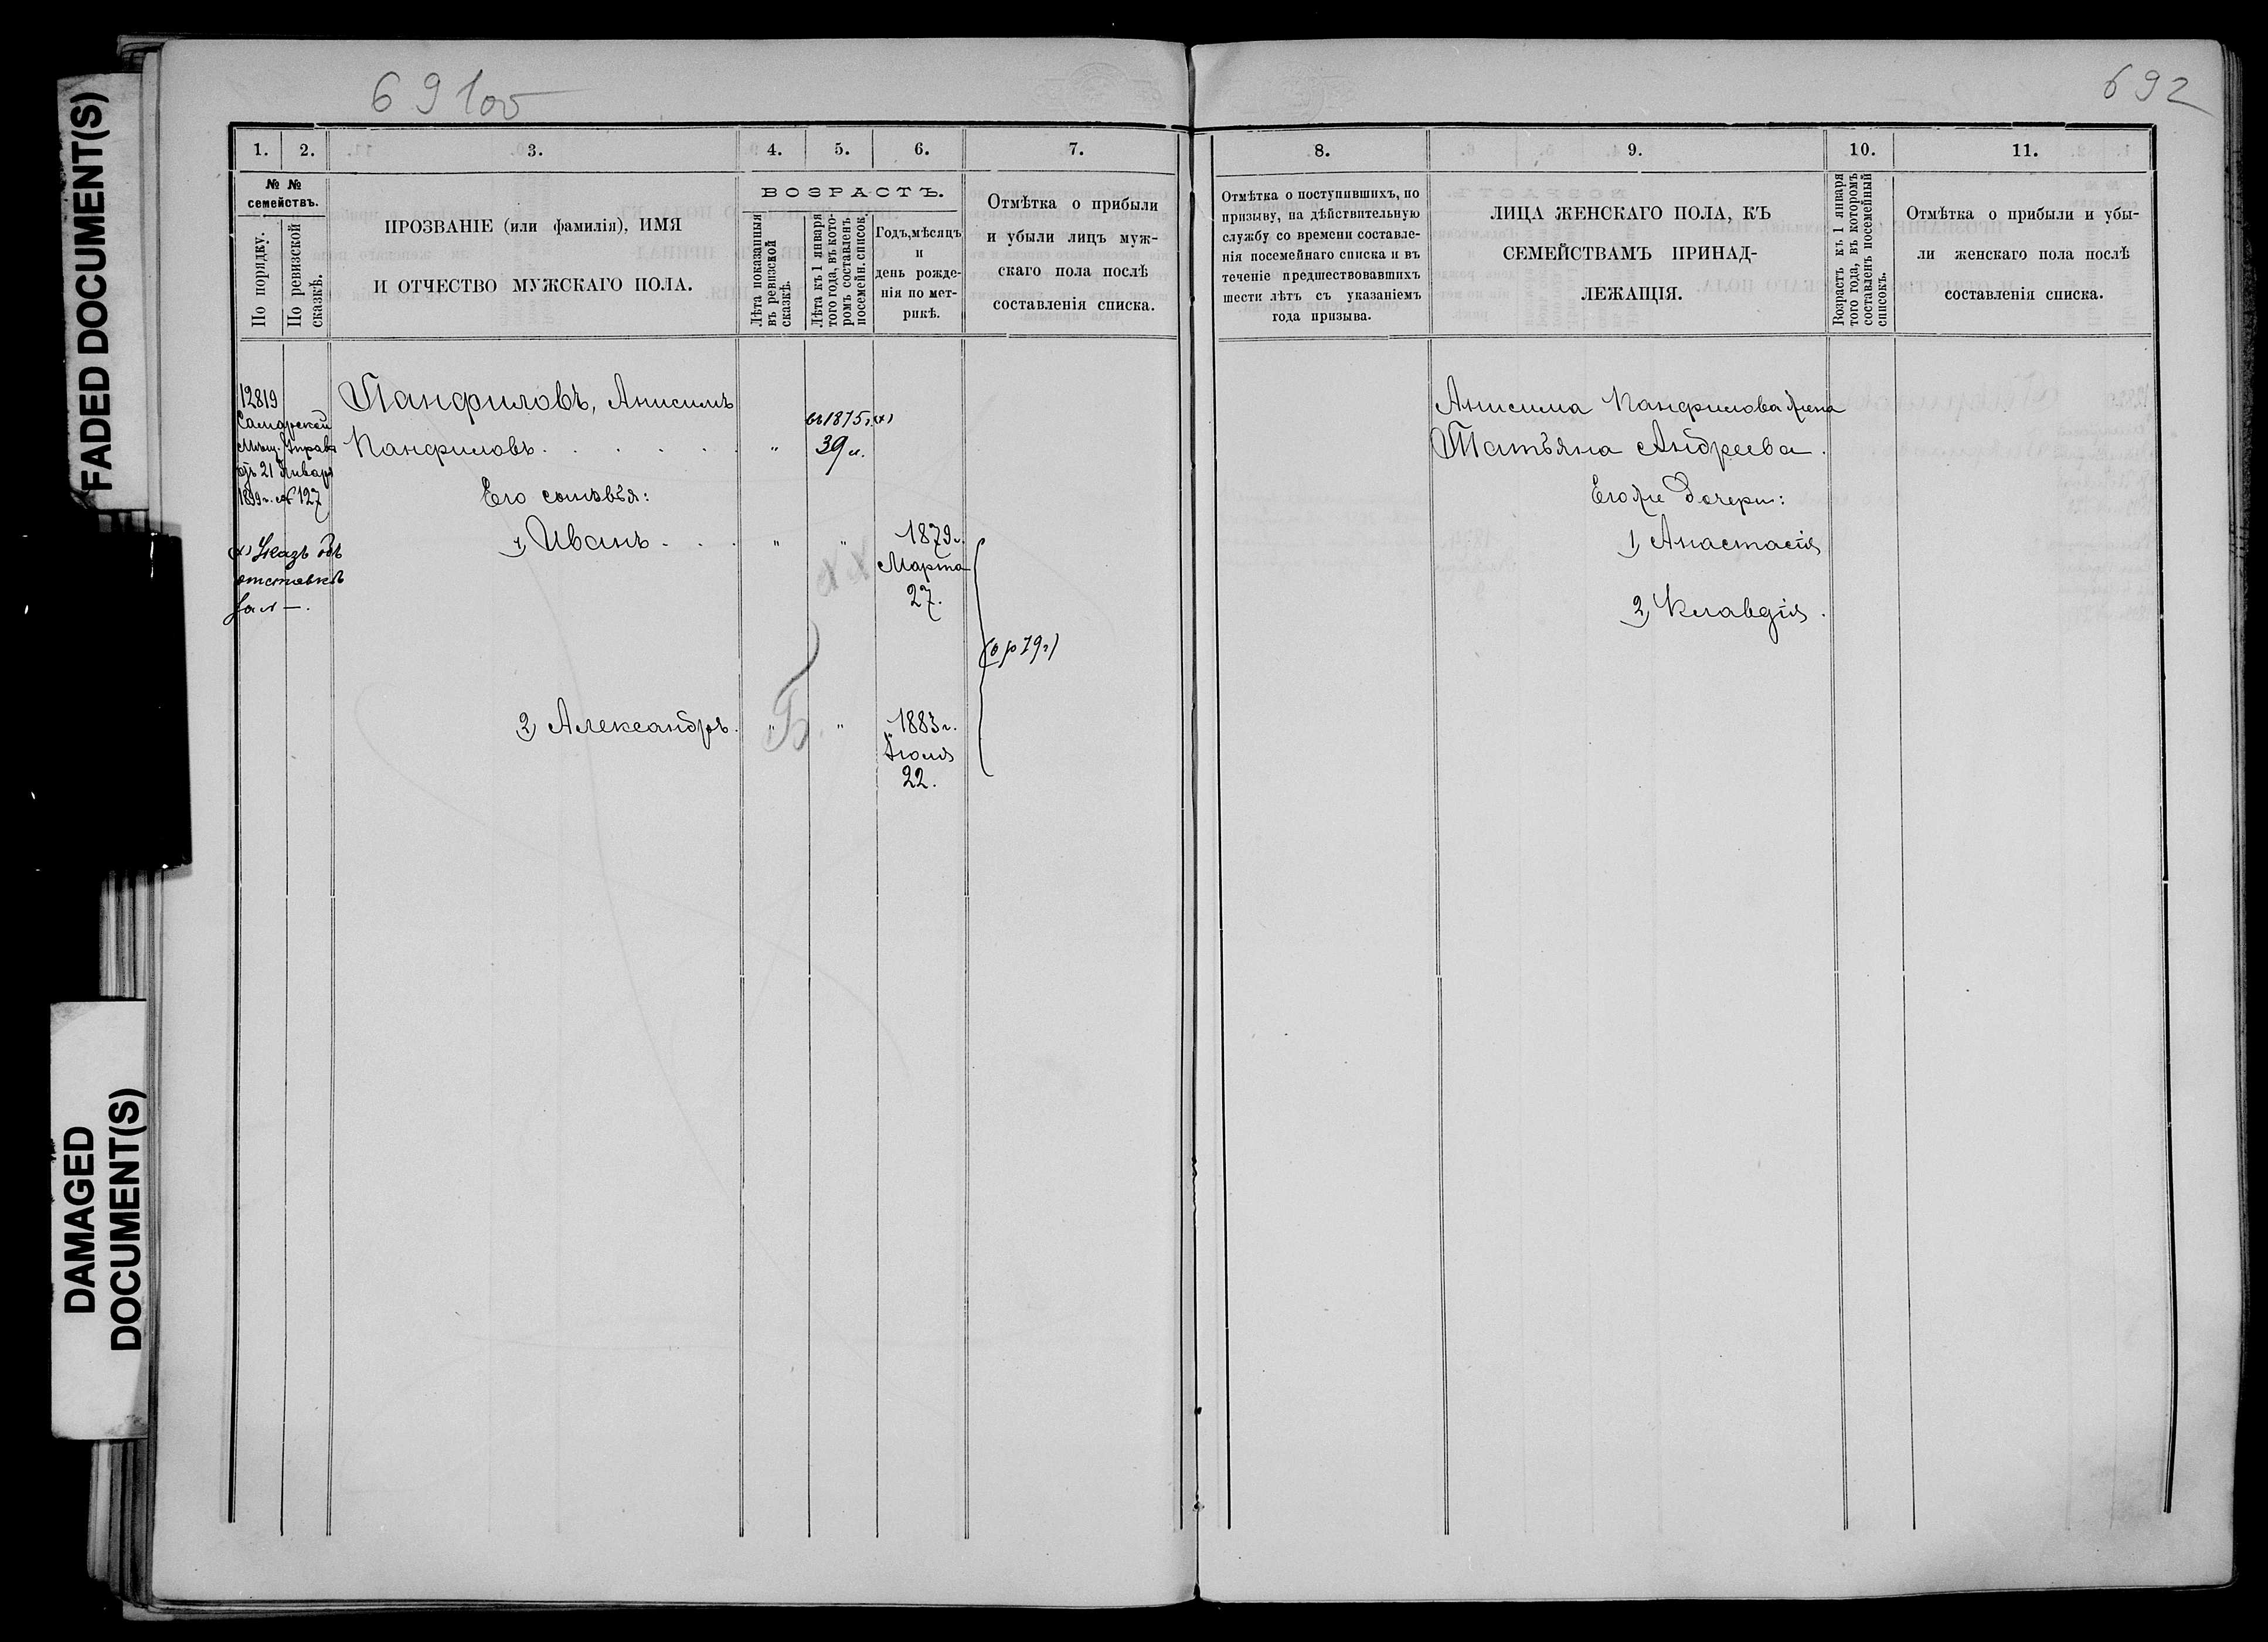 FADED DOCUMENT(S)
DAMAGED
DOCUMENT(S)
691об
1. 2. 3. 4. 5. 6. 7.
№ №
семействъ.
По порядку.
По ревизской
сказкѣ.
ПРОЗВАНІЕ (или фамилія), ИМЯ
И ОТЧЕСТВО МУЖСКАГО ПОЛА.
ВОЗРАСТЪ.
Лѣта показанныя
въ ревизской
сказкѣ.
Лѣта къ 1 января
того года, въ кото-
ромъ составленъ
посемейн. списокъ.
Годъ, мѣсяцъ
и
день рожде-
нія по мет-
рикѣ.
Отмѣтка о прибыли
и убыли лицъ муж-
скаго пола послѣ
составленія списка.
12819
Самарской
Мѣщ. Управы
отъ 21 Января
1899 г. № 127
х) Указъ объ
отставкѣ
Панфиловъ, Анисимъ
Панфиловъ . . . . . . "
въ 1875 г. х)
39 л.
Его сыновья:
1) Иванъ . . . " "
1879 г.
Марта
27.
(о р 79 г)
2) Александръ. " Б. "
1883 г.
Іюля
22.
692
8. 9. 10. 11.
Отмѣтка о поступившихъ, по
призыву, на дѣйствительную
службу со времени составле-
нія посемейнаго списка и въ
теченіе предшествовавшихъ
шести лѣтъ съ указаніемъ
года призыва.
ЛИЦА ЖЕНСКАГО ПОЛА, КЪ
СЕМЕЙСТВАМЪ ПРИНАД-
ЛЕЖАЩІЯ.
Возрастъ къ 1 января
того года, въ которомъ
составленъ посемейный
списокъ.
Отмѣтка о прибыли и убы-
ли женскаго пола послѣ
составленія списка.
Анисима Панфилова жена
Татьяна Андреева .
Его же дочери:
1) Анастасія
2) Клавдія .